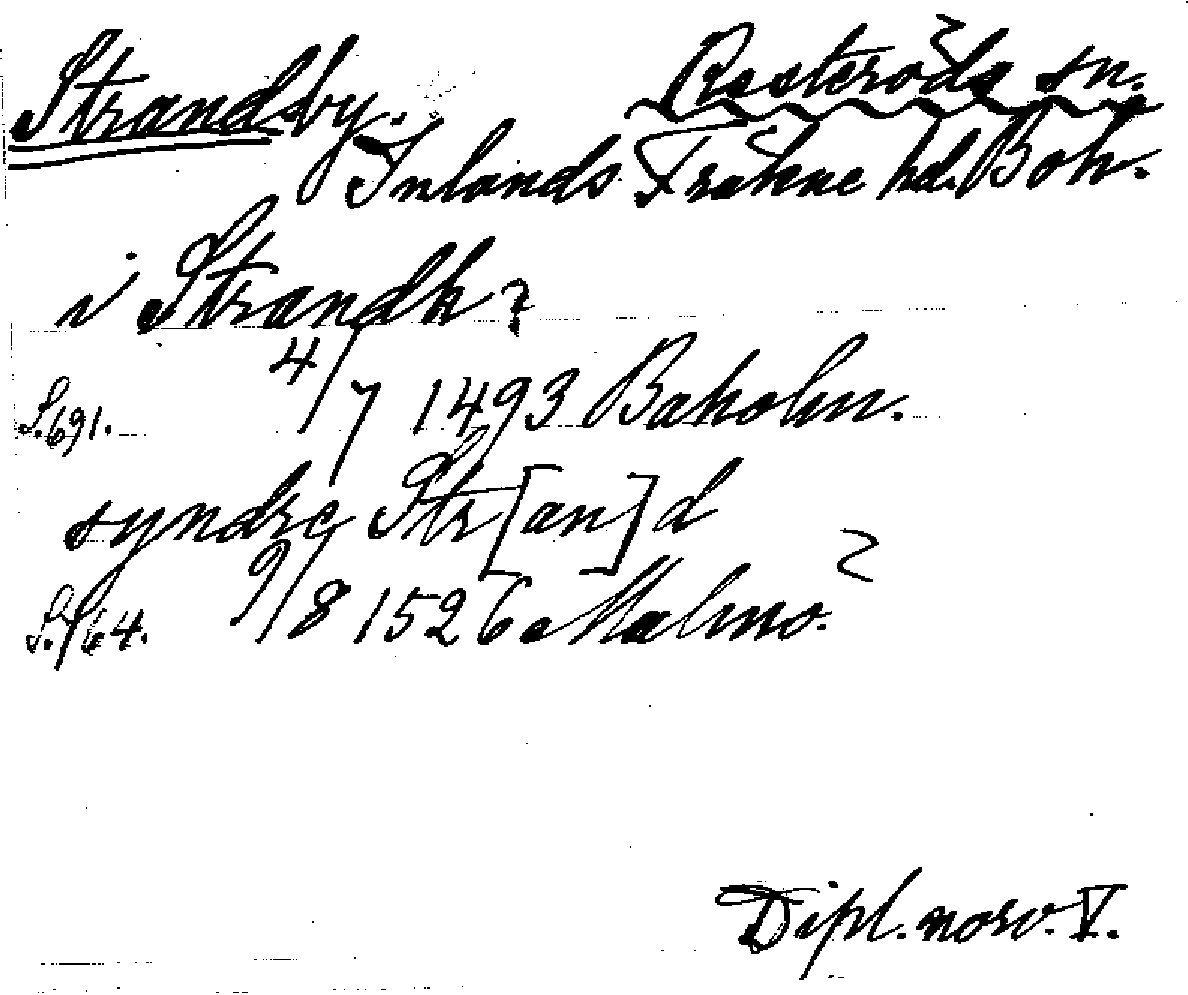 Strandby. Resteröds sn.
Inlands Fräkne hd. Boh.
i Strandh ?
S. 691. 4/7 1493 Baholm.
syndre Str[an]d
S. 764. 9/8 1526 Malmö.
Dipl. norv. V.